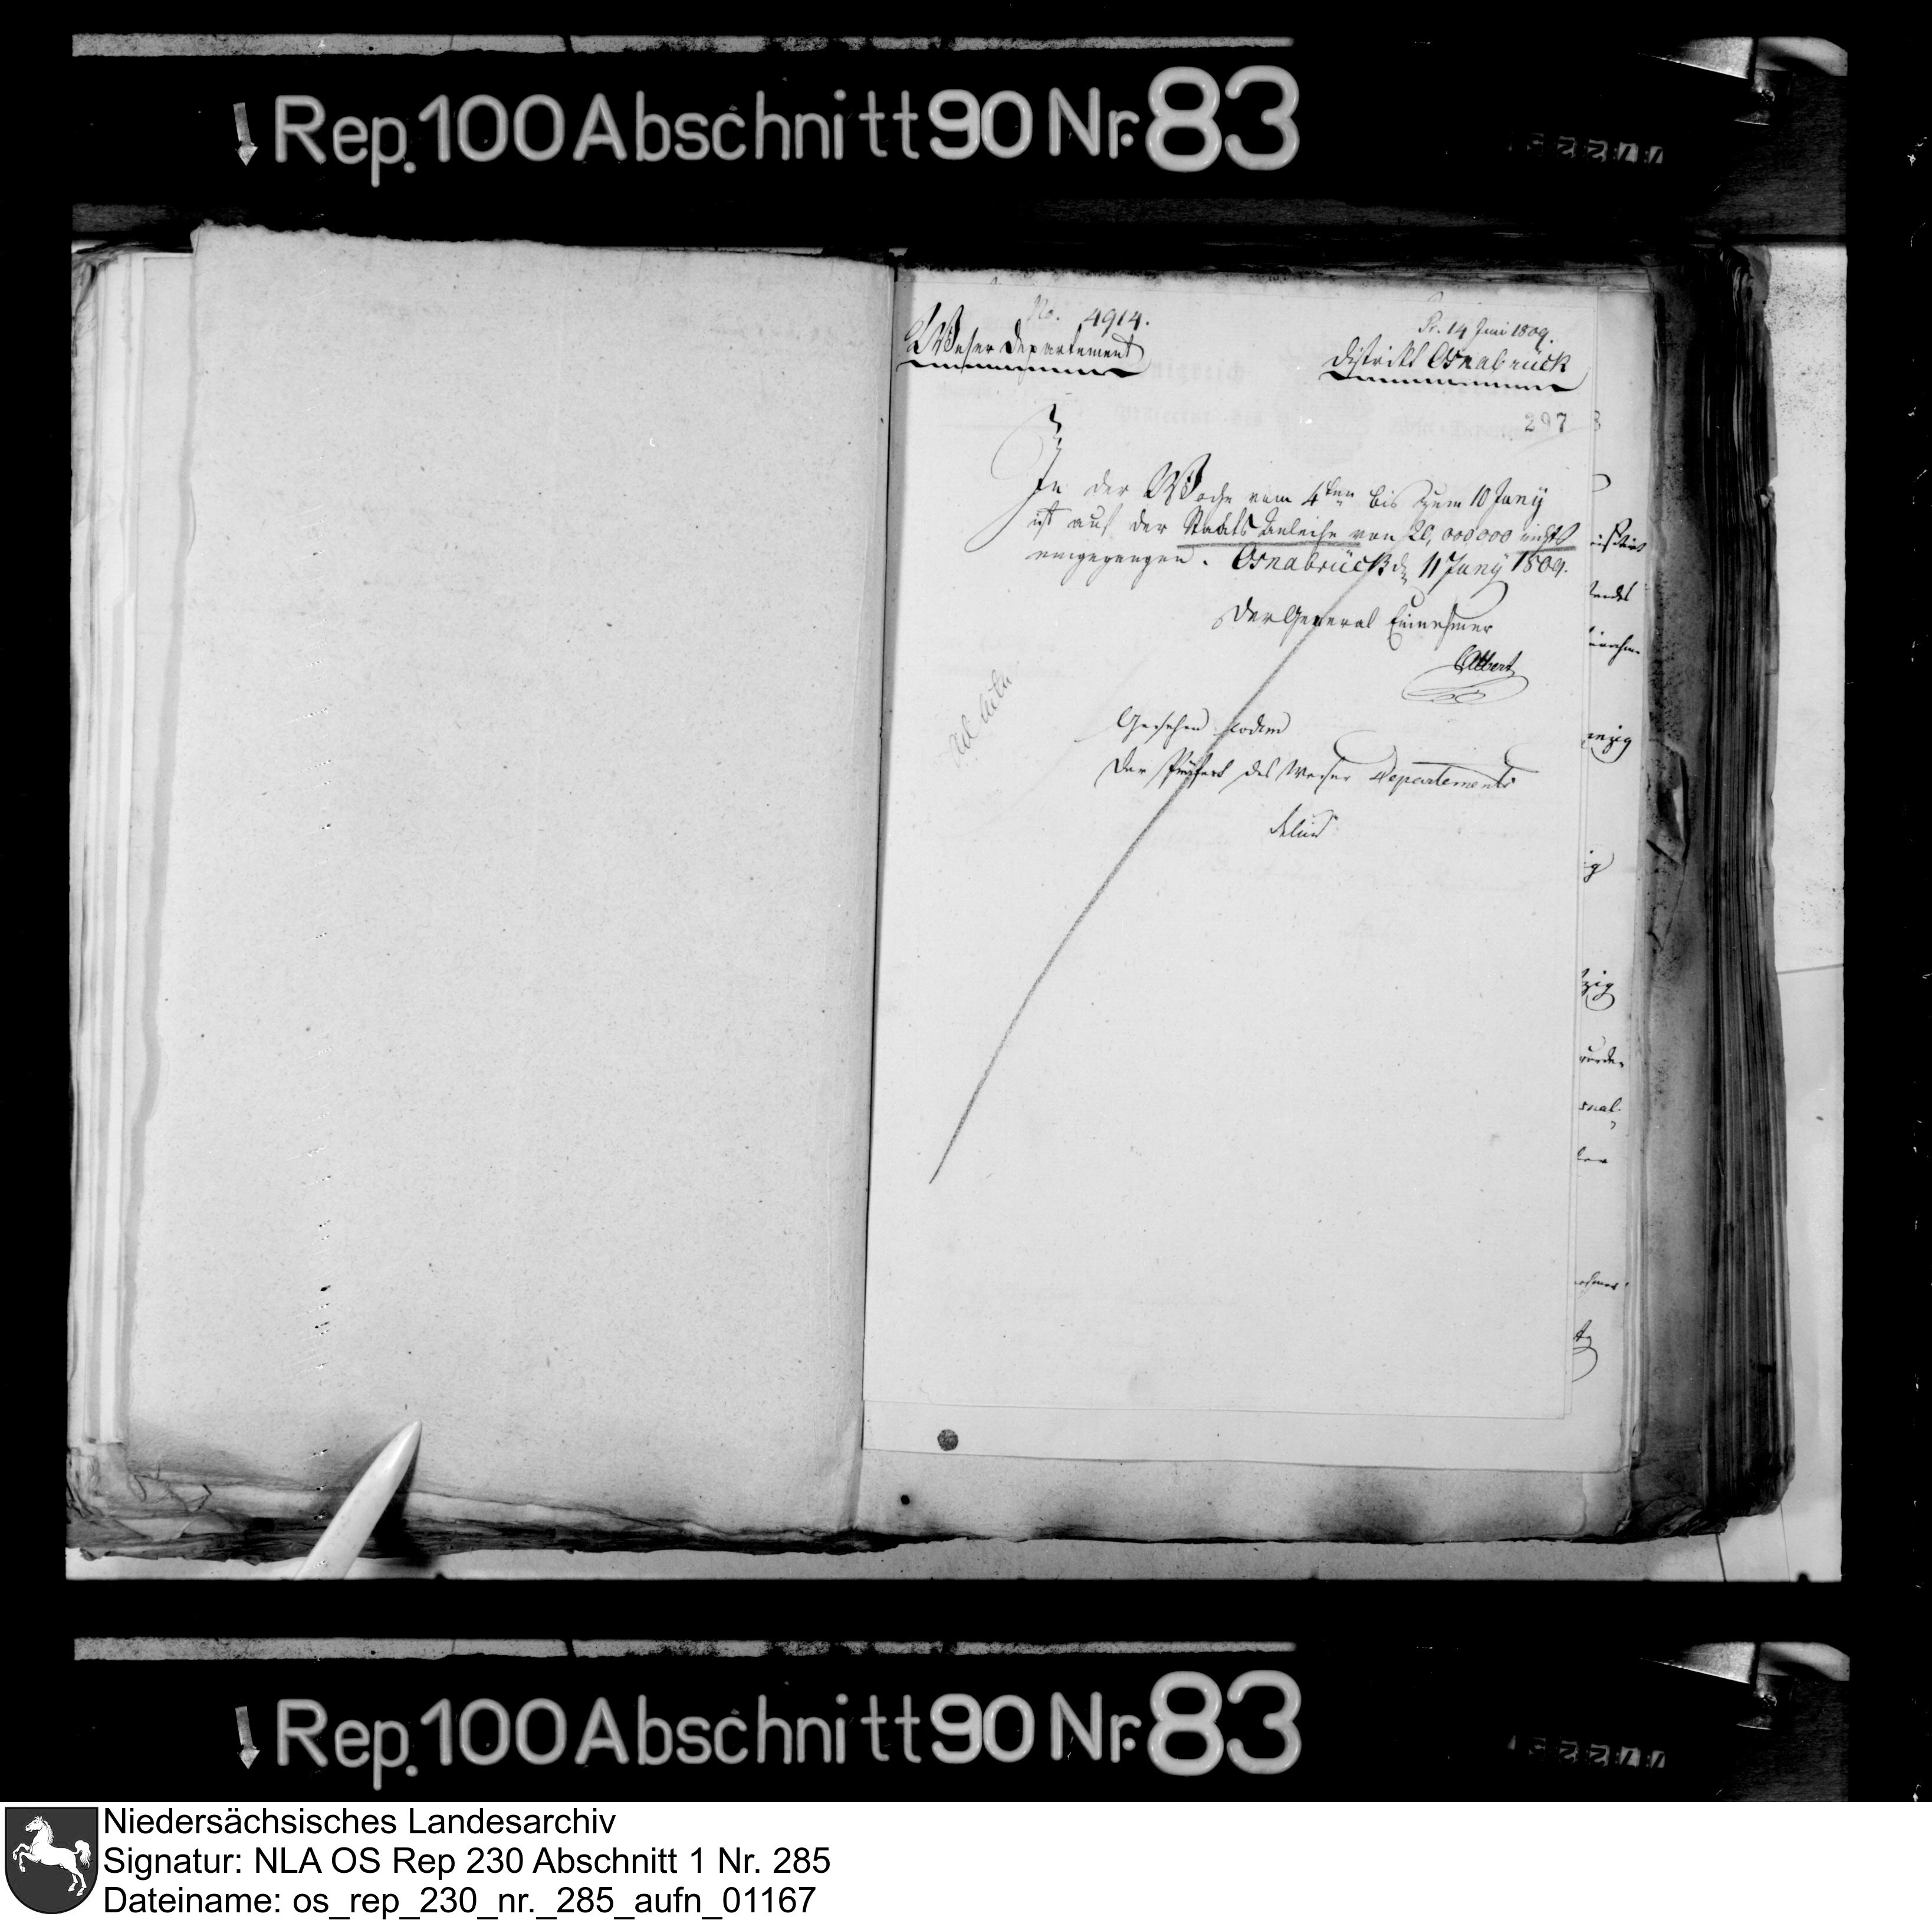 Rep. 100 Abschnitt 90 Nr. 83
No. 4914.
Pr. 14 Juni 1809.
Weser Departement
District Osnabrück
297
In der Woche vom 4ten bis zum 10 Juny
ist auf der Staats Anleihe von 20,000000 nichts
eingegangen. Osnabrück dn 11 Juny 1809.
Der General Einnehmer
Albert
Gesehen eodem
Der Präfect des Weser Departements
Delius
ad acta
Rep. 100 Abschnitt 90 Nr. 83
Niedersächsisches Landesarchiv
Signatur: NLA OS Rep 230 Abschnitt 1 Nr. 285
Dateiname: os_rep_230_nr._285_aufn_01167